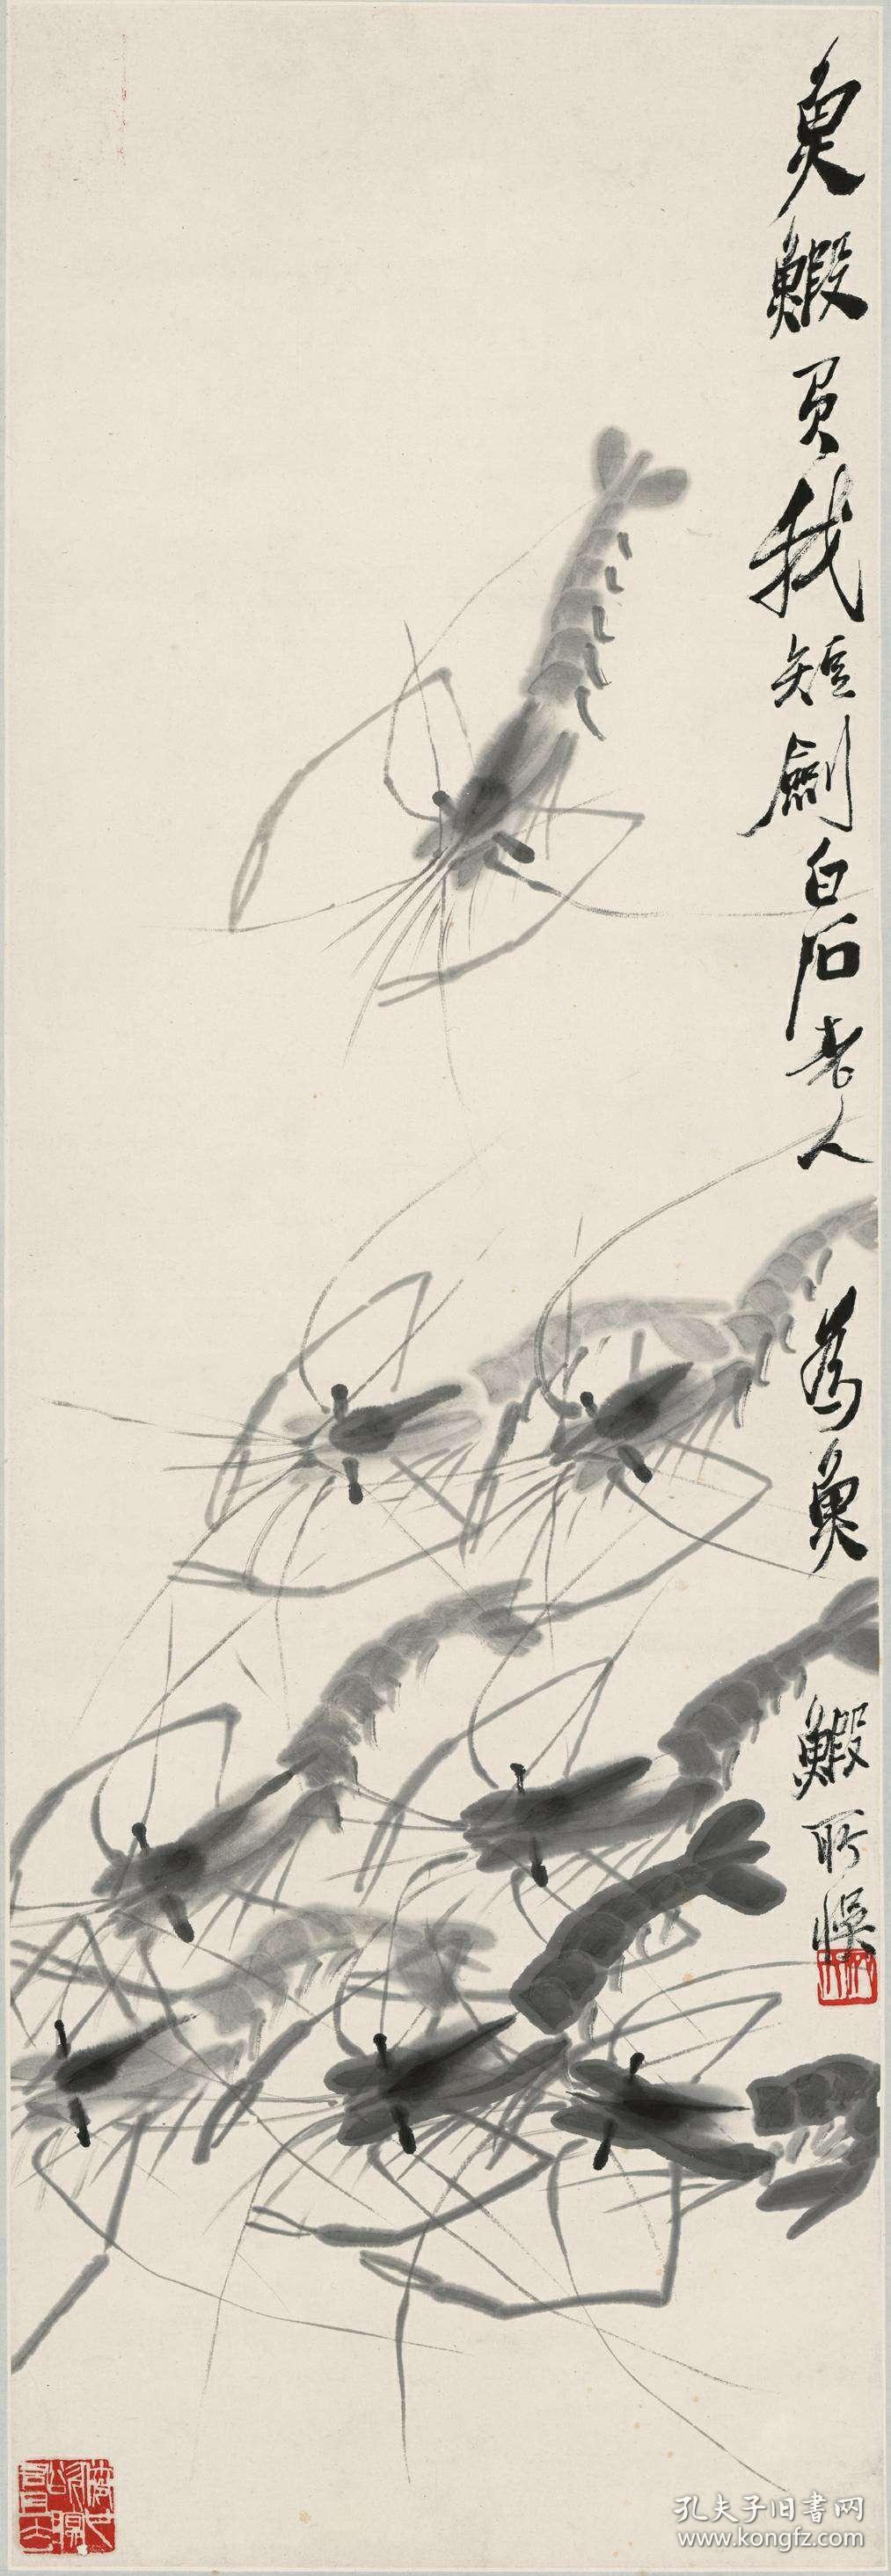 魚鰕負我短劍白石老人 為魚 鰕所悮
孔夫子旧书网
www.kongfz.com